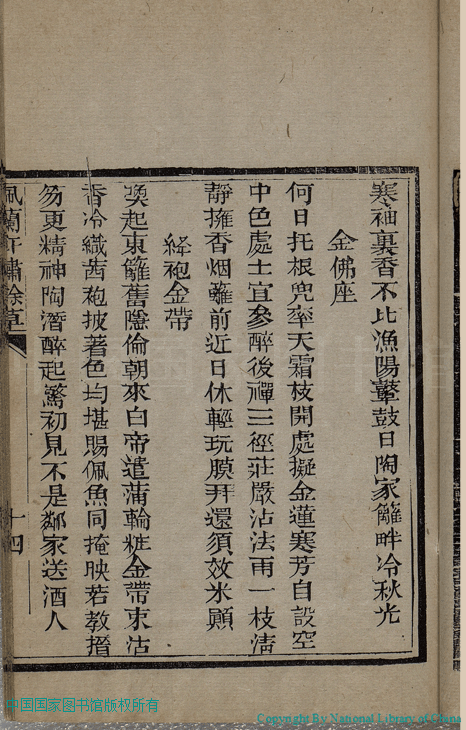 寒袖裏香不比漁陽鼙鼓日陶家籬畔冷秋光
金佛座
何日托根兜率天霜枝開處擬金蓮寒芳自設空
中色處士宜參醉後禪三徑莊嚴沾法雨一枝清
靜擁香烟籬前近日休輕玩膜拜還須效米顚
絳袍金帶
喚起東籬舊隱倫朝來白帝遣蒲輪粧金帶束沽
香冷織茜袍披著色均堪賜佩魚同掩映若教搢
笏更精神陶潛醉起驚初見不是鄰家送酒人
佩蘭軒繡餘草
十四
中国国家图书馆版权所有
Copyright By National Library of China